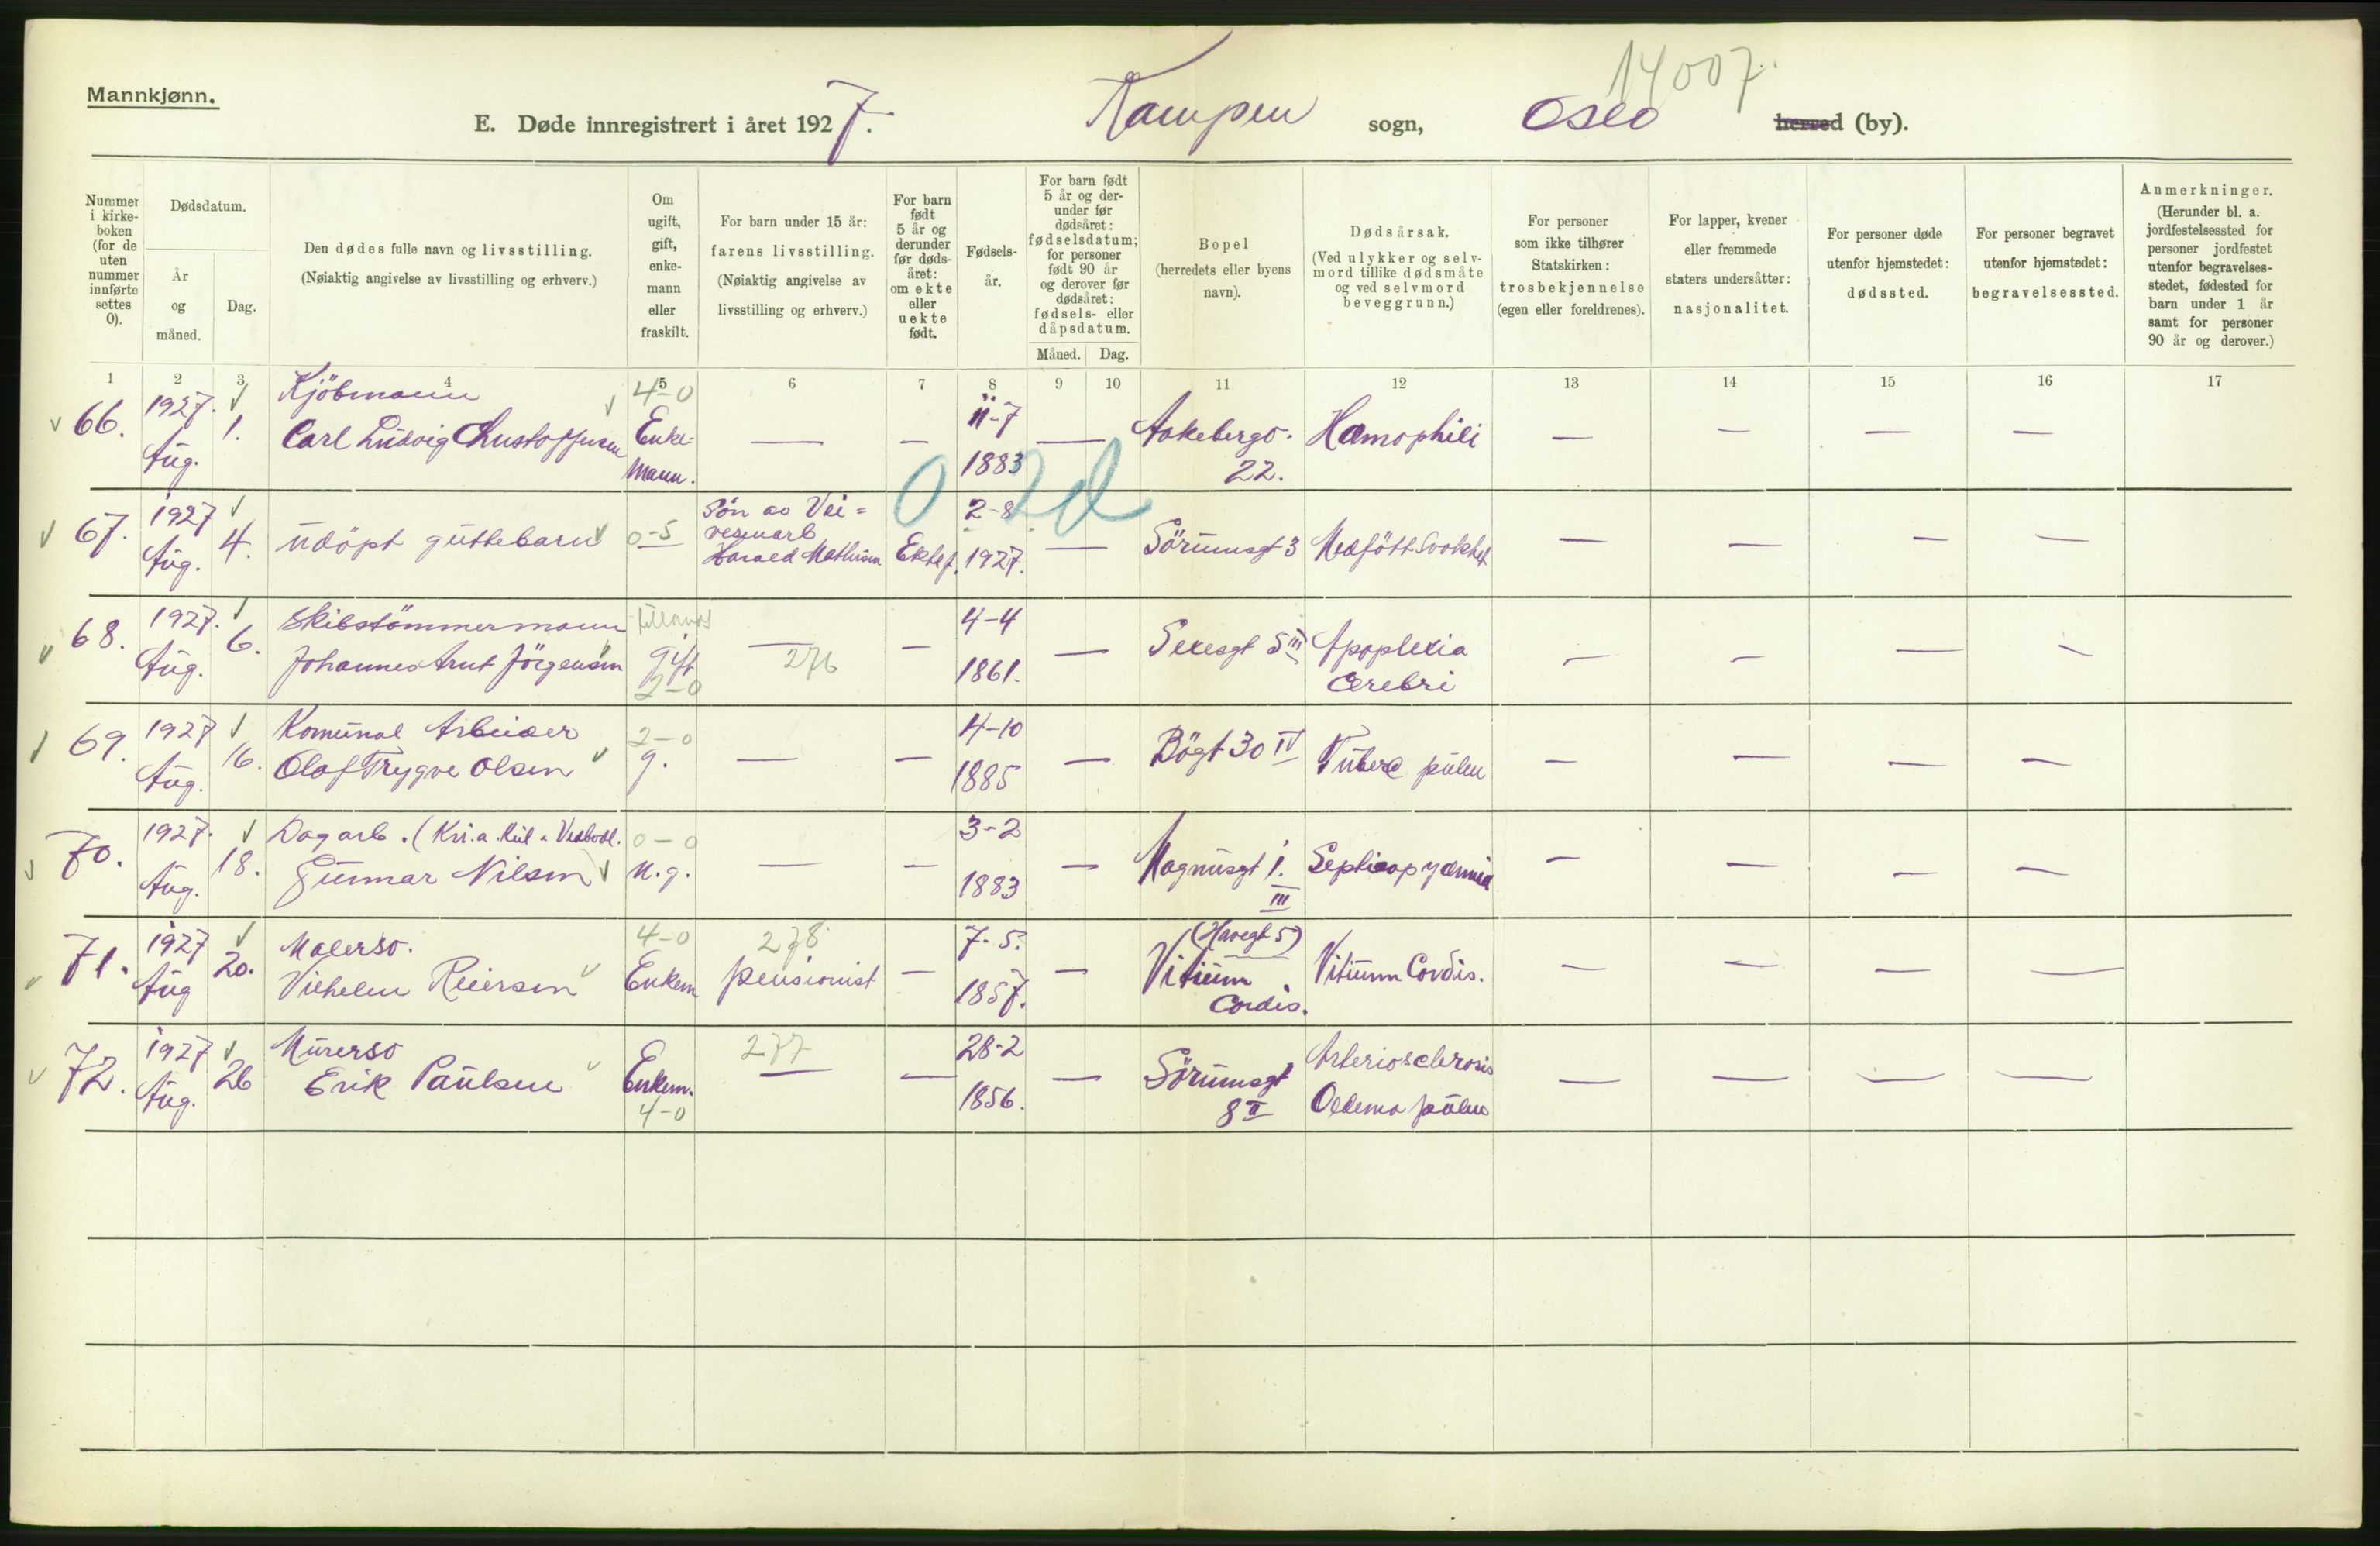 14007.
Mannkjønn.
E. Døde innregistrert i året 1927. Kampen sogn, Oslo herred (by).
Nummer i kirke-boken (for de uten nummer innførte settes 0).
Dødsdatum.
År og måned.
Dag.
Den dødes fulle navn og livsstilling.
(Nøiaktig angivelse av livsstilling og erhverv.)
Om ugift, gift, enke-mann eller fraskilt.
For barn under 15 år:
farens livsstilling.
(Nøiaktig angivelse av livsstilling og erhverv.)
For barn født 5 år og derunder før døds-året: om ekte eller uekte født.
Fødsels-år.
For barn født 5 år og der-under før dødsåret: fødselsdatum; for personer født 90 år og derover før dødsåret: fødsels- eller dåpsdatum.
Måned. Dag.
Bopel
(herredets eller byens navn).
Dødsårsak.
(Ved ulykker og selv-mord tillike dødsmåte og ved selvmord beveggrunn.)
For personer som ikke tilhører Statskirken: trosbekjennelse (egen eller foreldrenes).
For lapper, kvener eller fremmede staters undersåtter: nasjonalitet.
For personer døde utenfor hjemstedet: dødssted.
For personer begravet utenfor hjemstedet: begravelsessted.
Anmerkninger.
(Herunder bl. a. jordfestelsessted for personer jordfestet utenfor begravelses-stedet, fødested for barn under 1 år samt for personer 90 år og derover.)
1 2 3 4 5 6 7 8 9 10 11 12 13 14 15 16 17
66. 1927. Aug. 1. Kjöbmann
Carl Ludvig 4-0 Enke-
mann. — — 11-7
1883 — Aakebergv.
22. Hæmophili — — — —
0 2d
67. 1927 Aug. 4. Udöpt guttebarn 0-5 Sön av Vei=
vesenarb
Harald Mathisen Ektef. 2-8
1927. — Sörumsgt 3 Medfött Svakhet — — — —
68. 1927. Aug. 6. Skibstömmermann
Johannes Arnt Jörgensen gift
2-0 — 276 — 4-4
1861. — Sexesgt 5 III Apoplexia
cerebri — — — —
69. 1927 Aug. 16. Komunal Arbeider
Olaf Trygve Olsen 2-0
g. — — 4-10
1885 — Bögt 30 IV Tuberc pulm — — — —
70. 1927. Aug. 18. Dagarb. (Kr.a. Kul & Vedbodl.
Gunnar Nilsen 0-0
u.g. — — 3-2
1883 — Magnusgt 1.
III Septicopyæmia — — — —
71. 1927 Aug 20. Malersv.
Vilhelm Reiersen 4-0
Enkem 278
pensionist — 7-5.
1857. — (Havegt 5)
Vitium
Cordis. Vitium Cordis. — — — —
72. 1927 Aug. 26 Murersv
Erik Paulsen Enkem.
4-0 277
— — 28-2
1856. — Sörumsgt
8 II Arteriosclerosis
Oedema pulm — — — —